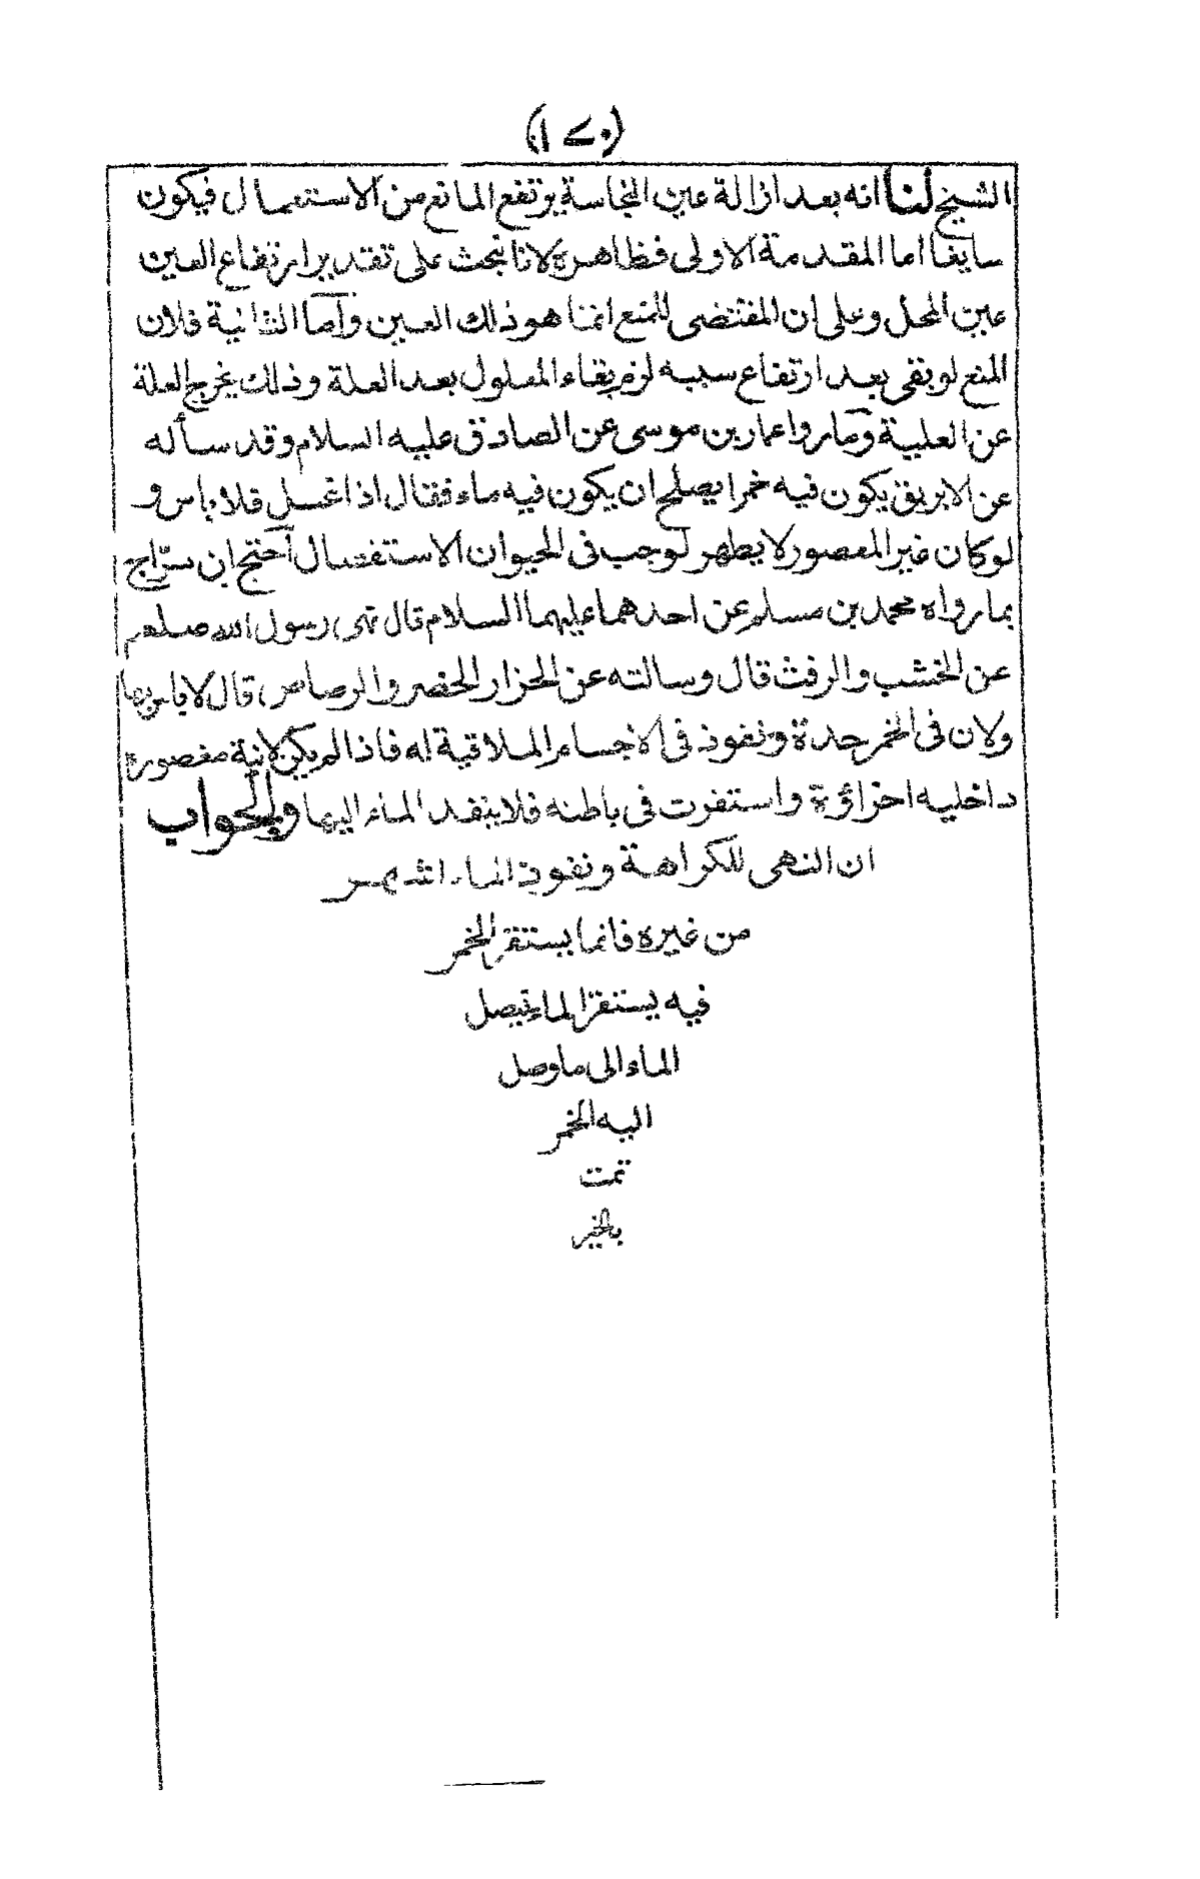 (١٧٠)
الشيخ لنا انه بعد ازالة عين النجاسة يرتفع المانع من الاستعمال فيكون
سايغا اما المقدمة الاولى فظاهرة لانا نبحث على تقدير ارتفاع العين
عين المحل وعلى ان المقتضى للمنع انما هو ذلك العين وآما الثانية فلان
المنع لو بقى بعد ارتفاع سببه لزم بقاء المعلول بعد العلة وذلك يخرج العلة
عن العلية ومآ رواعمار بن موسى عن الصادق عليه السلام وقد سأله
عن الابريق يكون فيه خمرا يصلح ان يكون فيه ماء فقال اذا غسل فلا باس و
لو كان غير المعصور لا يطهر لوجب فى الحيوان الاستفصال آحتج ابن سرّاج
بما رواه محمد بن مسلم عن احدهما عليهما السلام قال نهى رسول الله صلعم
عن الخشب والرفث قال وسالته عن الحزار الخضر والرصاص قال لا باس بها
ولان فى الخمر حدة ونفوذ فى الاجسام الملاقية له فاذا لم يكن لانية مغصورة
داخليه احزاؤرة واستفرت فى باطنه فلا ينفد الماء اليها والجواب
ان النهى للكراهة ونفوذ الماء اشد
من غيره فانما يستقر الخمر
فيه يستنقر الماء يتصل
الماء الى ما وصل
اليه الخمر
تمت
بالخير